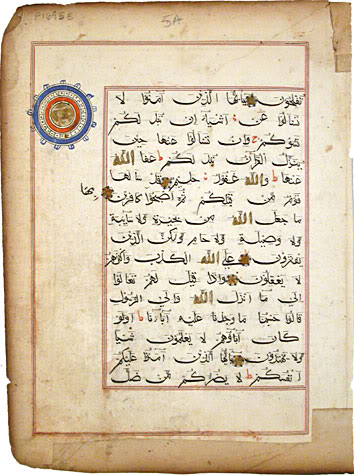 5A
تفلحون يايها الذين آمنوا لا
تسألوا عن اشياء ان تبد لكم
تسؤكم وان تسألوا عنها حين
ينزل القرآن تبد لكم عفا الله
عنها والله غفور حليم قد سألها
قوم من قبلكم ثم اصبحوا كافرين
بها
ما جعل الله من بحيرة ولا سائبة
ولا وصيلة ولا حام ولكن الذين
يفترون على الله الكذب واكثرهم
لا يعقلون واذا قيل لهم تعالوا
الى ما انزل الله والى الرسول
قالوا حسبنا ما وجدنا عليه آباءنا اولو
كان آباؤهم لا يعلمون شيئا
ولا يهتدون يايها الذين آمنوا عليكم
انفسكم لا يضركم من ضل